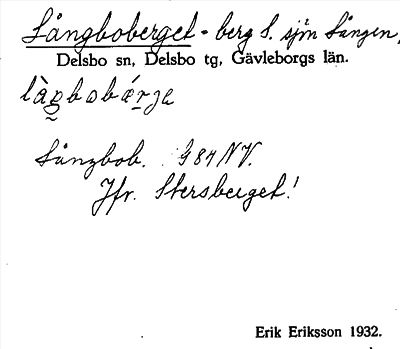 Långboberget - berg S. sjön Lången,
Delsbo sn, Delsbo tg, Gävleborgs län.
Långbob. G 84 NV.
Jfr. Stersberget!
Erik Eriksson 1932.